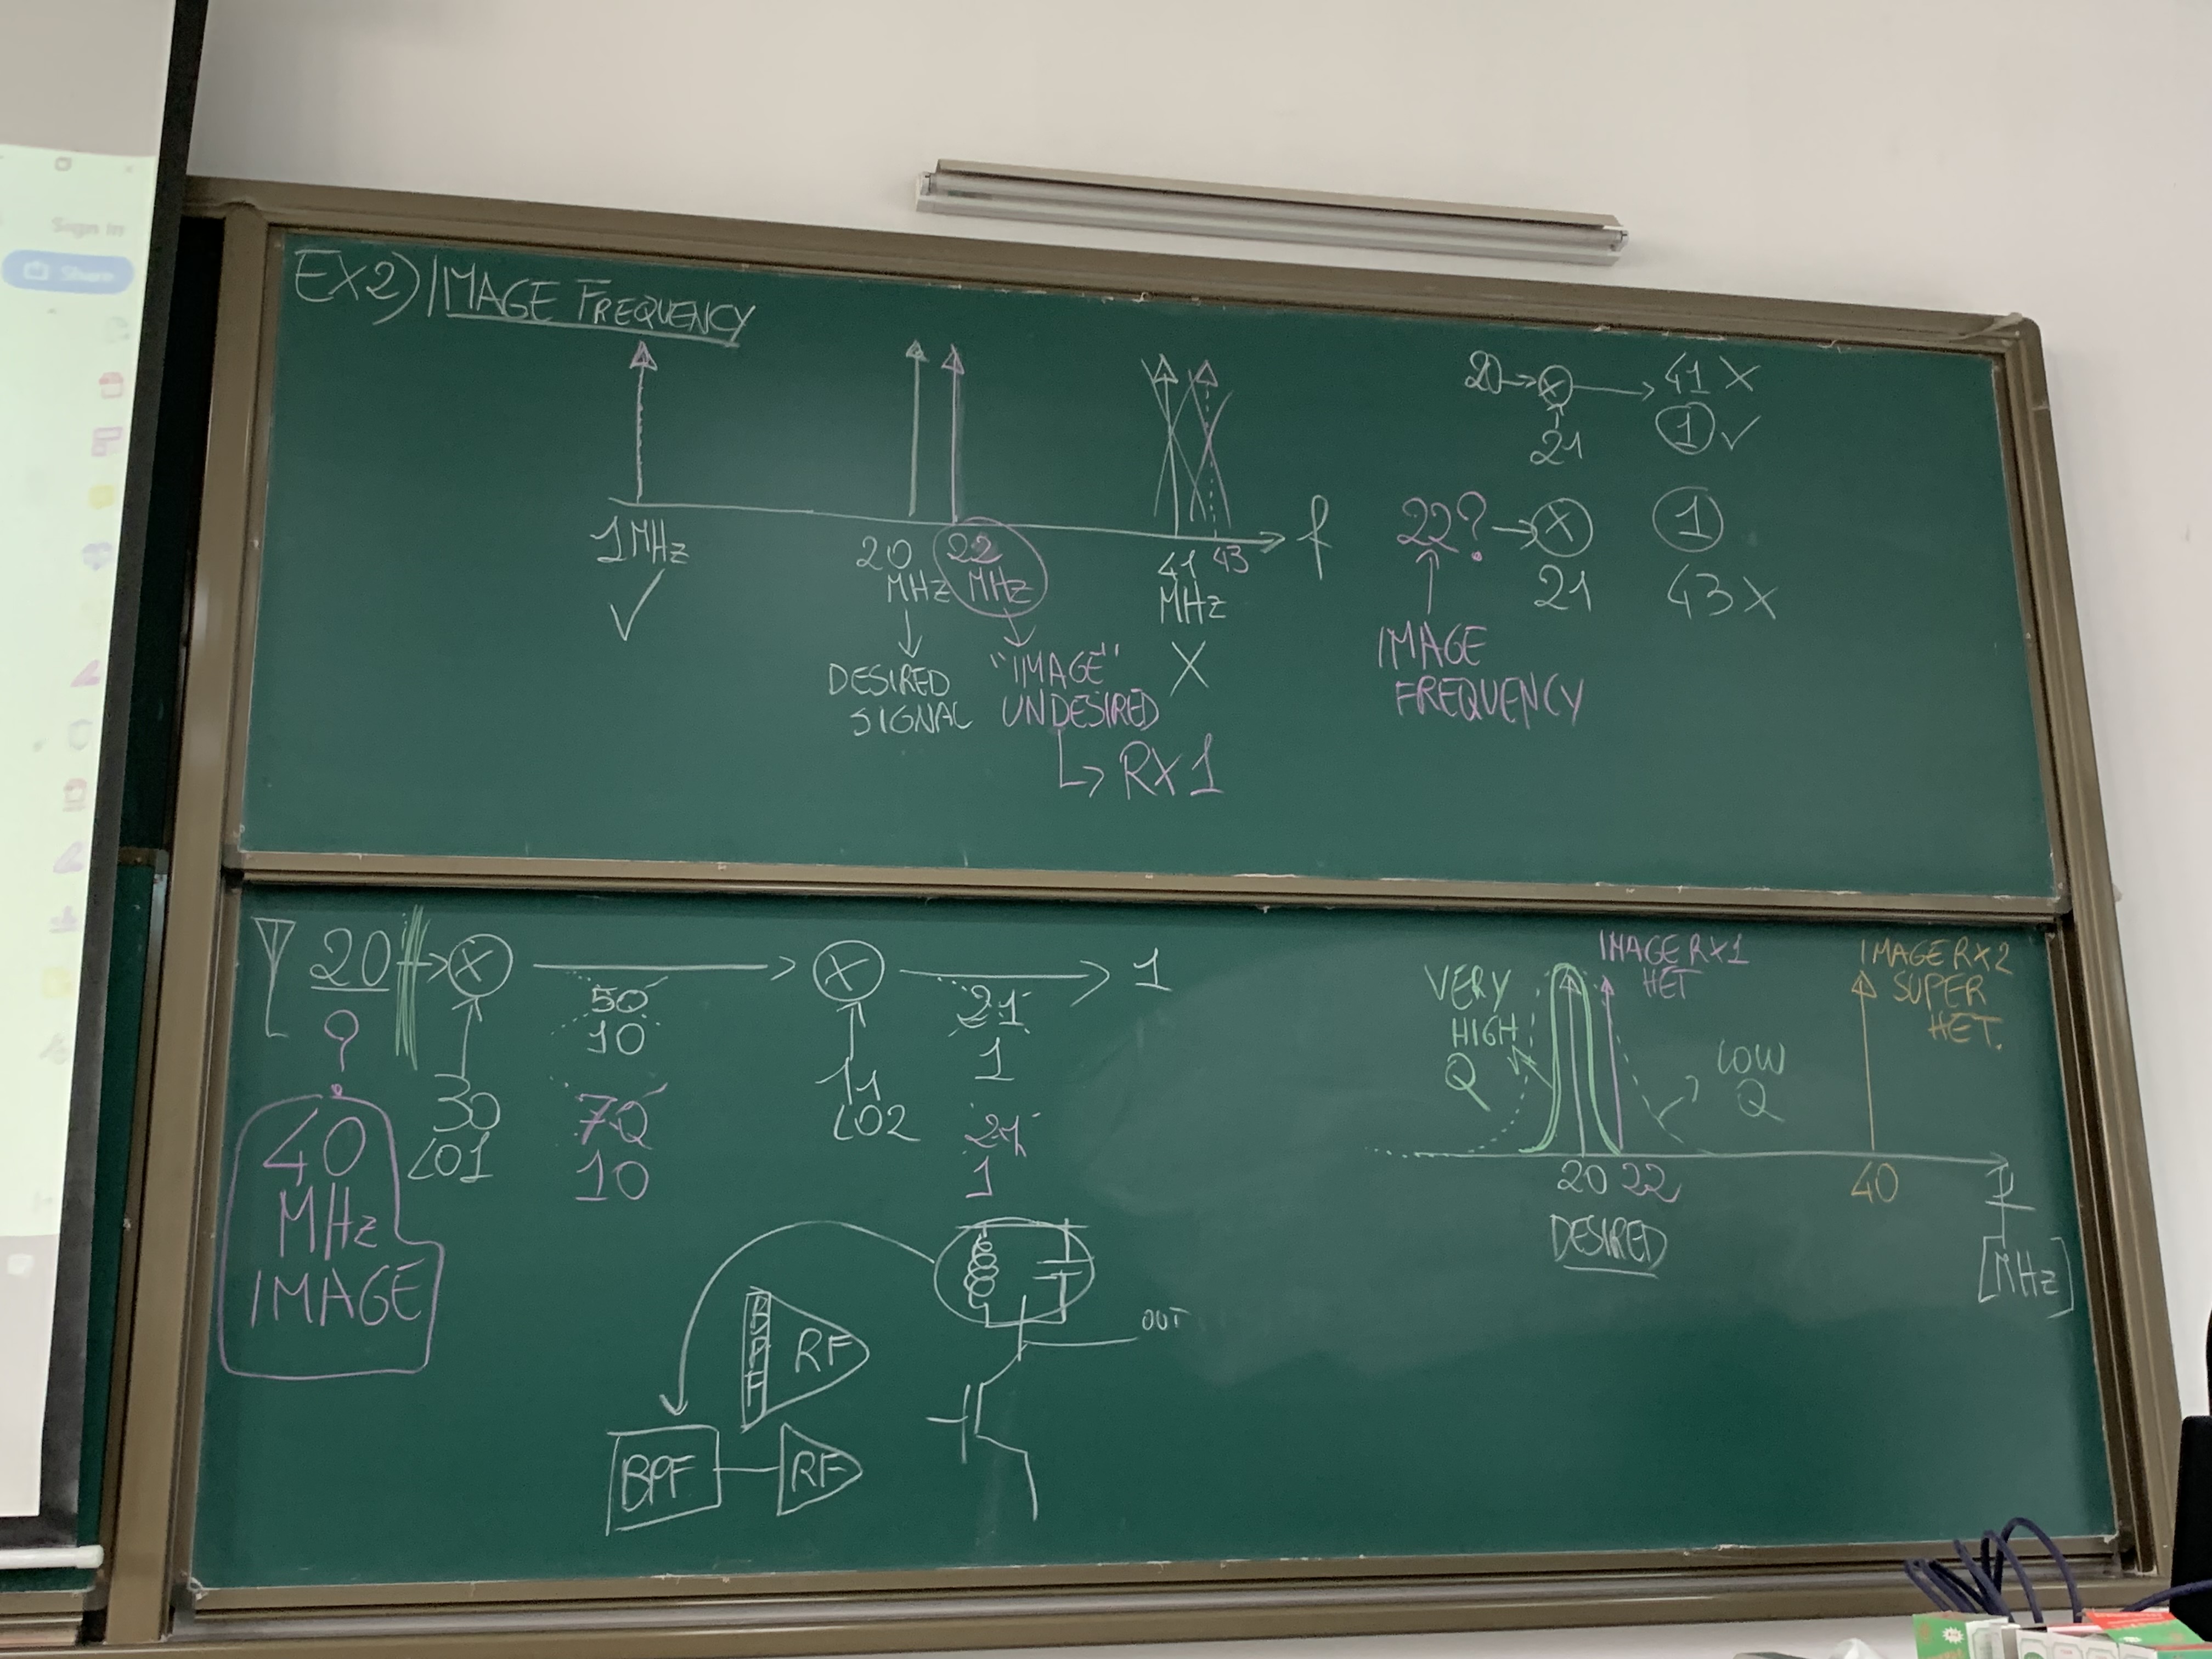 Sign in
Share
EX2) IMAGE FREQUENCY
1 MHz
20 MHz
22 MHz
41 MHz
43
f
DESIRED SIGNAL
"IMAGE" UNDESIRED
RX1
X
20
21
41 X
1
22?
21
1
43 X
IMAGE
FREQUENCY
20
?
40
MHz
IMAGE
30
LO1
50
10
70
10
11
LO2
21
1
21
1
1
BPF
RF
BPF
RF
OUT
VERY
HIGH
Q
IMAGE RX1
HET
IMAGE RX2
SUPER
HET.
LOW
Q
20 22
40
DESIRED
f
[MHz]